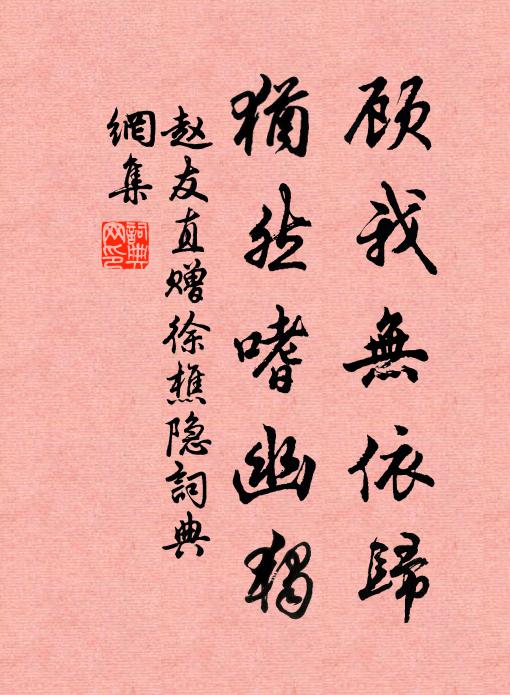 顾我無依歸
猶然嗜幽獨
赵友直赠徐樵隐詞典
網集
詞典
网印